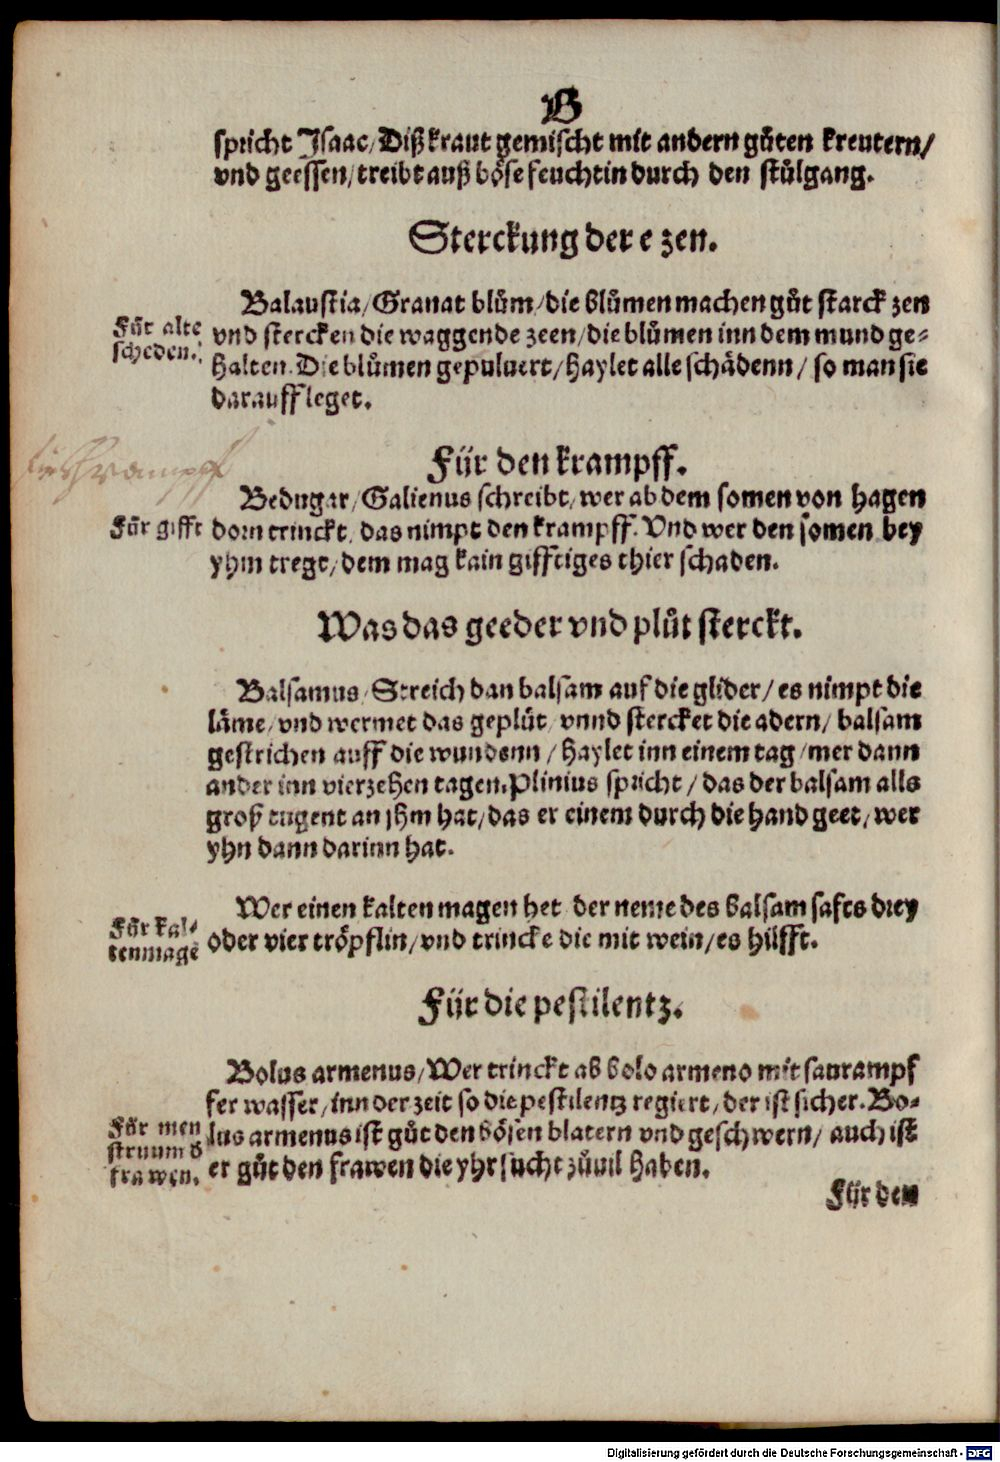 B
spricht Isaac/ Diß kraut gemischt mit andern gůten kreutern/
vnd geessen/ treibt auß böse feuchtin durch den stůlgang.
Sterckung der e zen.
Balaustia/ Granat blům/ die blůmen machen gůt starck zen
Für alte
scheden.
vnd stercken die waggende zeen/ die blůmen inn dem mund ge-
halten. Die blůmen gepuluert/ haylet alle schädenn/ so man sie
darauff leget.
Für den krampff.
Krampff
Bedugar/ Galienus schreibt/ wer ab dem somen von hagen
Für gifft
dorn trinckt, das nimpt den krampff. Vnd wer den somen bey
yhm tregt/ dem mag kain gifftiges thier schaden.
Was das geeder vnd plůt sterckt.
Balsamus/ Streich dan balsam auf die glider/ es nimpt die
läme/ vnd wermet das geplůt/ vnnd stercket die adern/ balsam
gestrichen auff die wundenn/ haylet inn einem tag/ mer dann
ander inn vierzehen tagen. Plinius spricht/ das der balsam alls
groß tugent an jhm hat/ das er einem durch die hand geet/ wer
yhn dann darinn hat.
Wer einen kalten magen het der neme des balsam safts drey
Für kal-
tenmagē
oder vier tröpflin/ vnd trincke die mit wein/ es hilfft.
Für die pestilentz.
Bolus armenus/ Wer trinckt ab bolo armeno mit saurampf
fer wasser/ inn der zeit so die pestilentz regiert/ der ist sicher. Bo-
Für men
struum d
frawen.
lus armenus ist gůt den bösen blatern vnd geschwern/ auch ist
er gůt den frawen die yhr sucht zůuil haben.
Für den
Digitalisierung gefördert durch die Deutsche Forschungsgemeinschaft - DFG